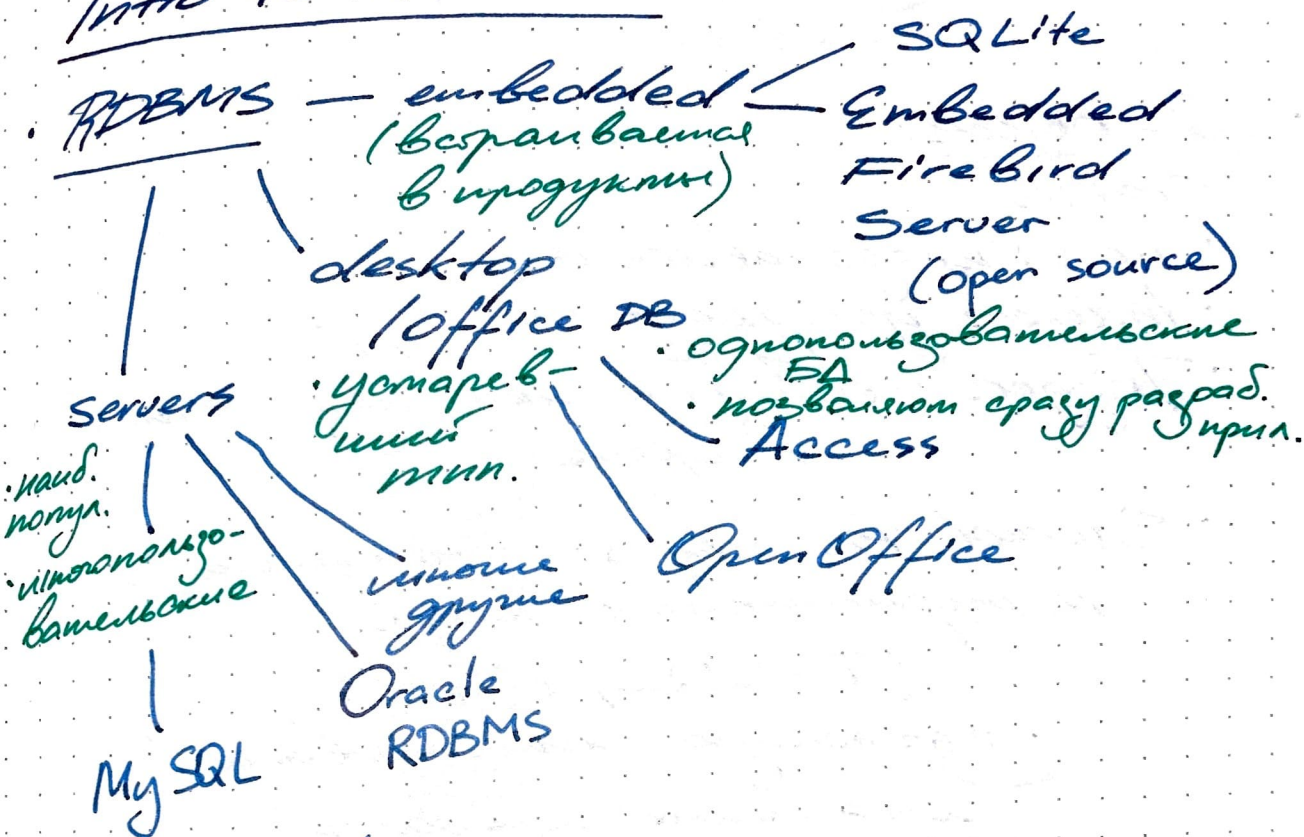 RDBMS — embedded
(встраивается
в продукты)
SQLite
Embedded
FireBird
Server
(open source)
desktop
/office DB
· устарев-
ший
тип.
· однопользовательские
БД
· позволяют сразу разраб.
прил.
Access
OpenOffice
servers
· наиб.
попул.
· многопользо-
вательские
многие
другие
Oracle
RDBMS
MySQL